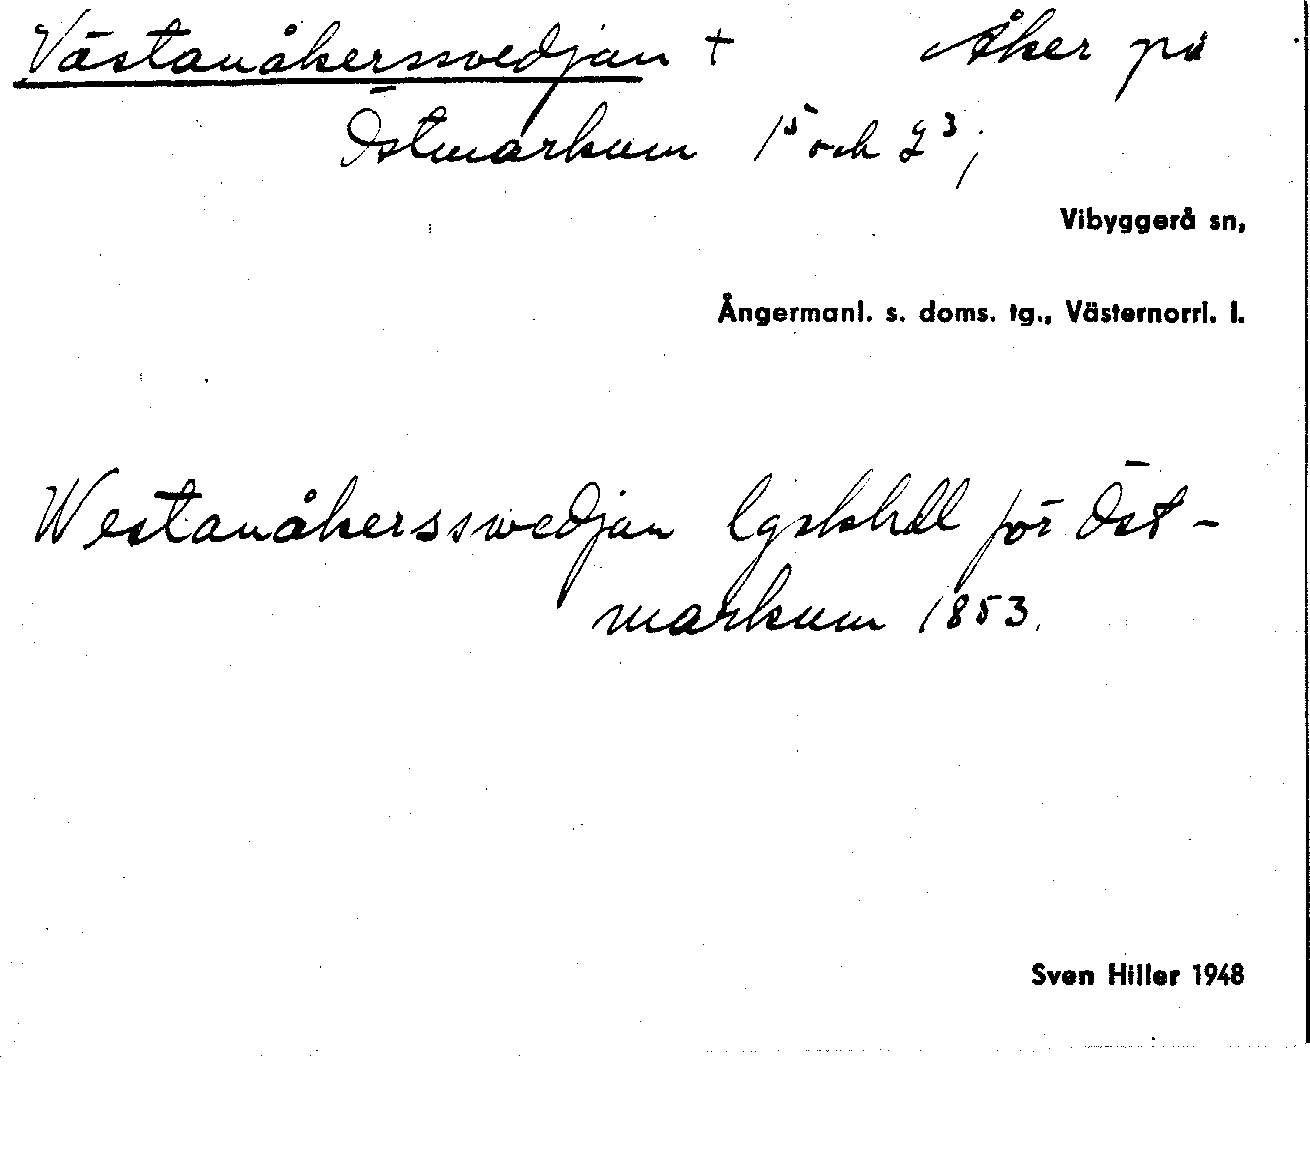 Västanåkerssvedjan + Åker på
Östmarkum 1⁵ och 2³;
Vibyggerå sn,
Ångermanl. s. doms. tg., Västernorrl. l.
Westanåkersswedjan lgskhdl för Öst-
markum 1853.
Sven Hiller 1948